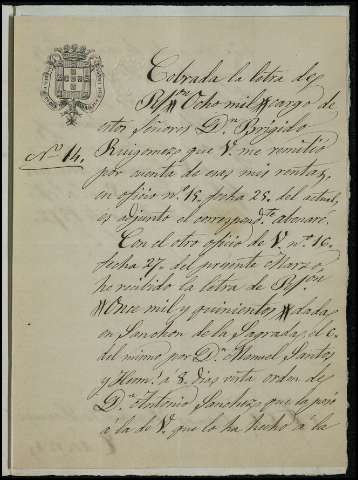 Cobrada la letra de
R.s on Ocho mil # cargo de
estos Señores D.n Brigido
N.o 14.
Ruigomez que V. me remitió
por cuenta de esas mis rentas,
en oficio n.o 15. fecha 25. del actual,
es adjunto el correspond.te abonaré.
Con el otro oficio de V. n.o 16.
fecha 27. del presente Marzo,
he recibido la letra de R.s on
# Once mil y quinientos # dadas
en Sanchon de la Sagrada, el 6.
del mismo por D. Manuel Santos
y Herm.o á 8. dias vista orden de
D.n Antonio Sanchez, que la pasó
á la de V. que lo ha hecho á la